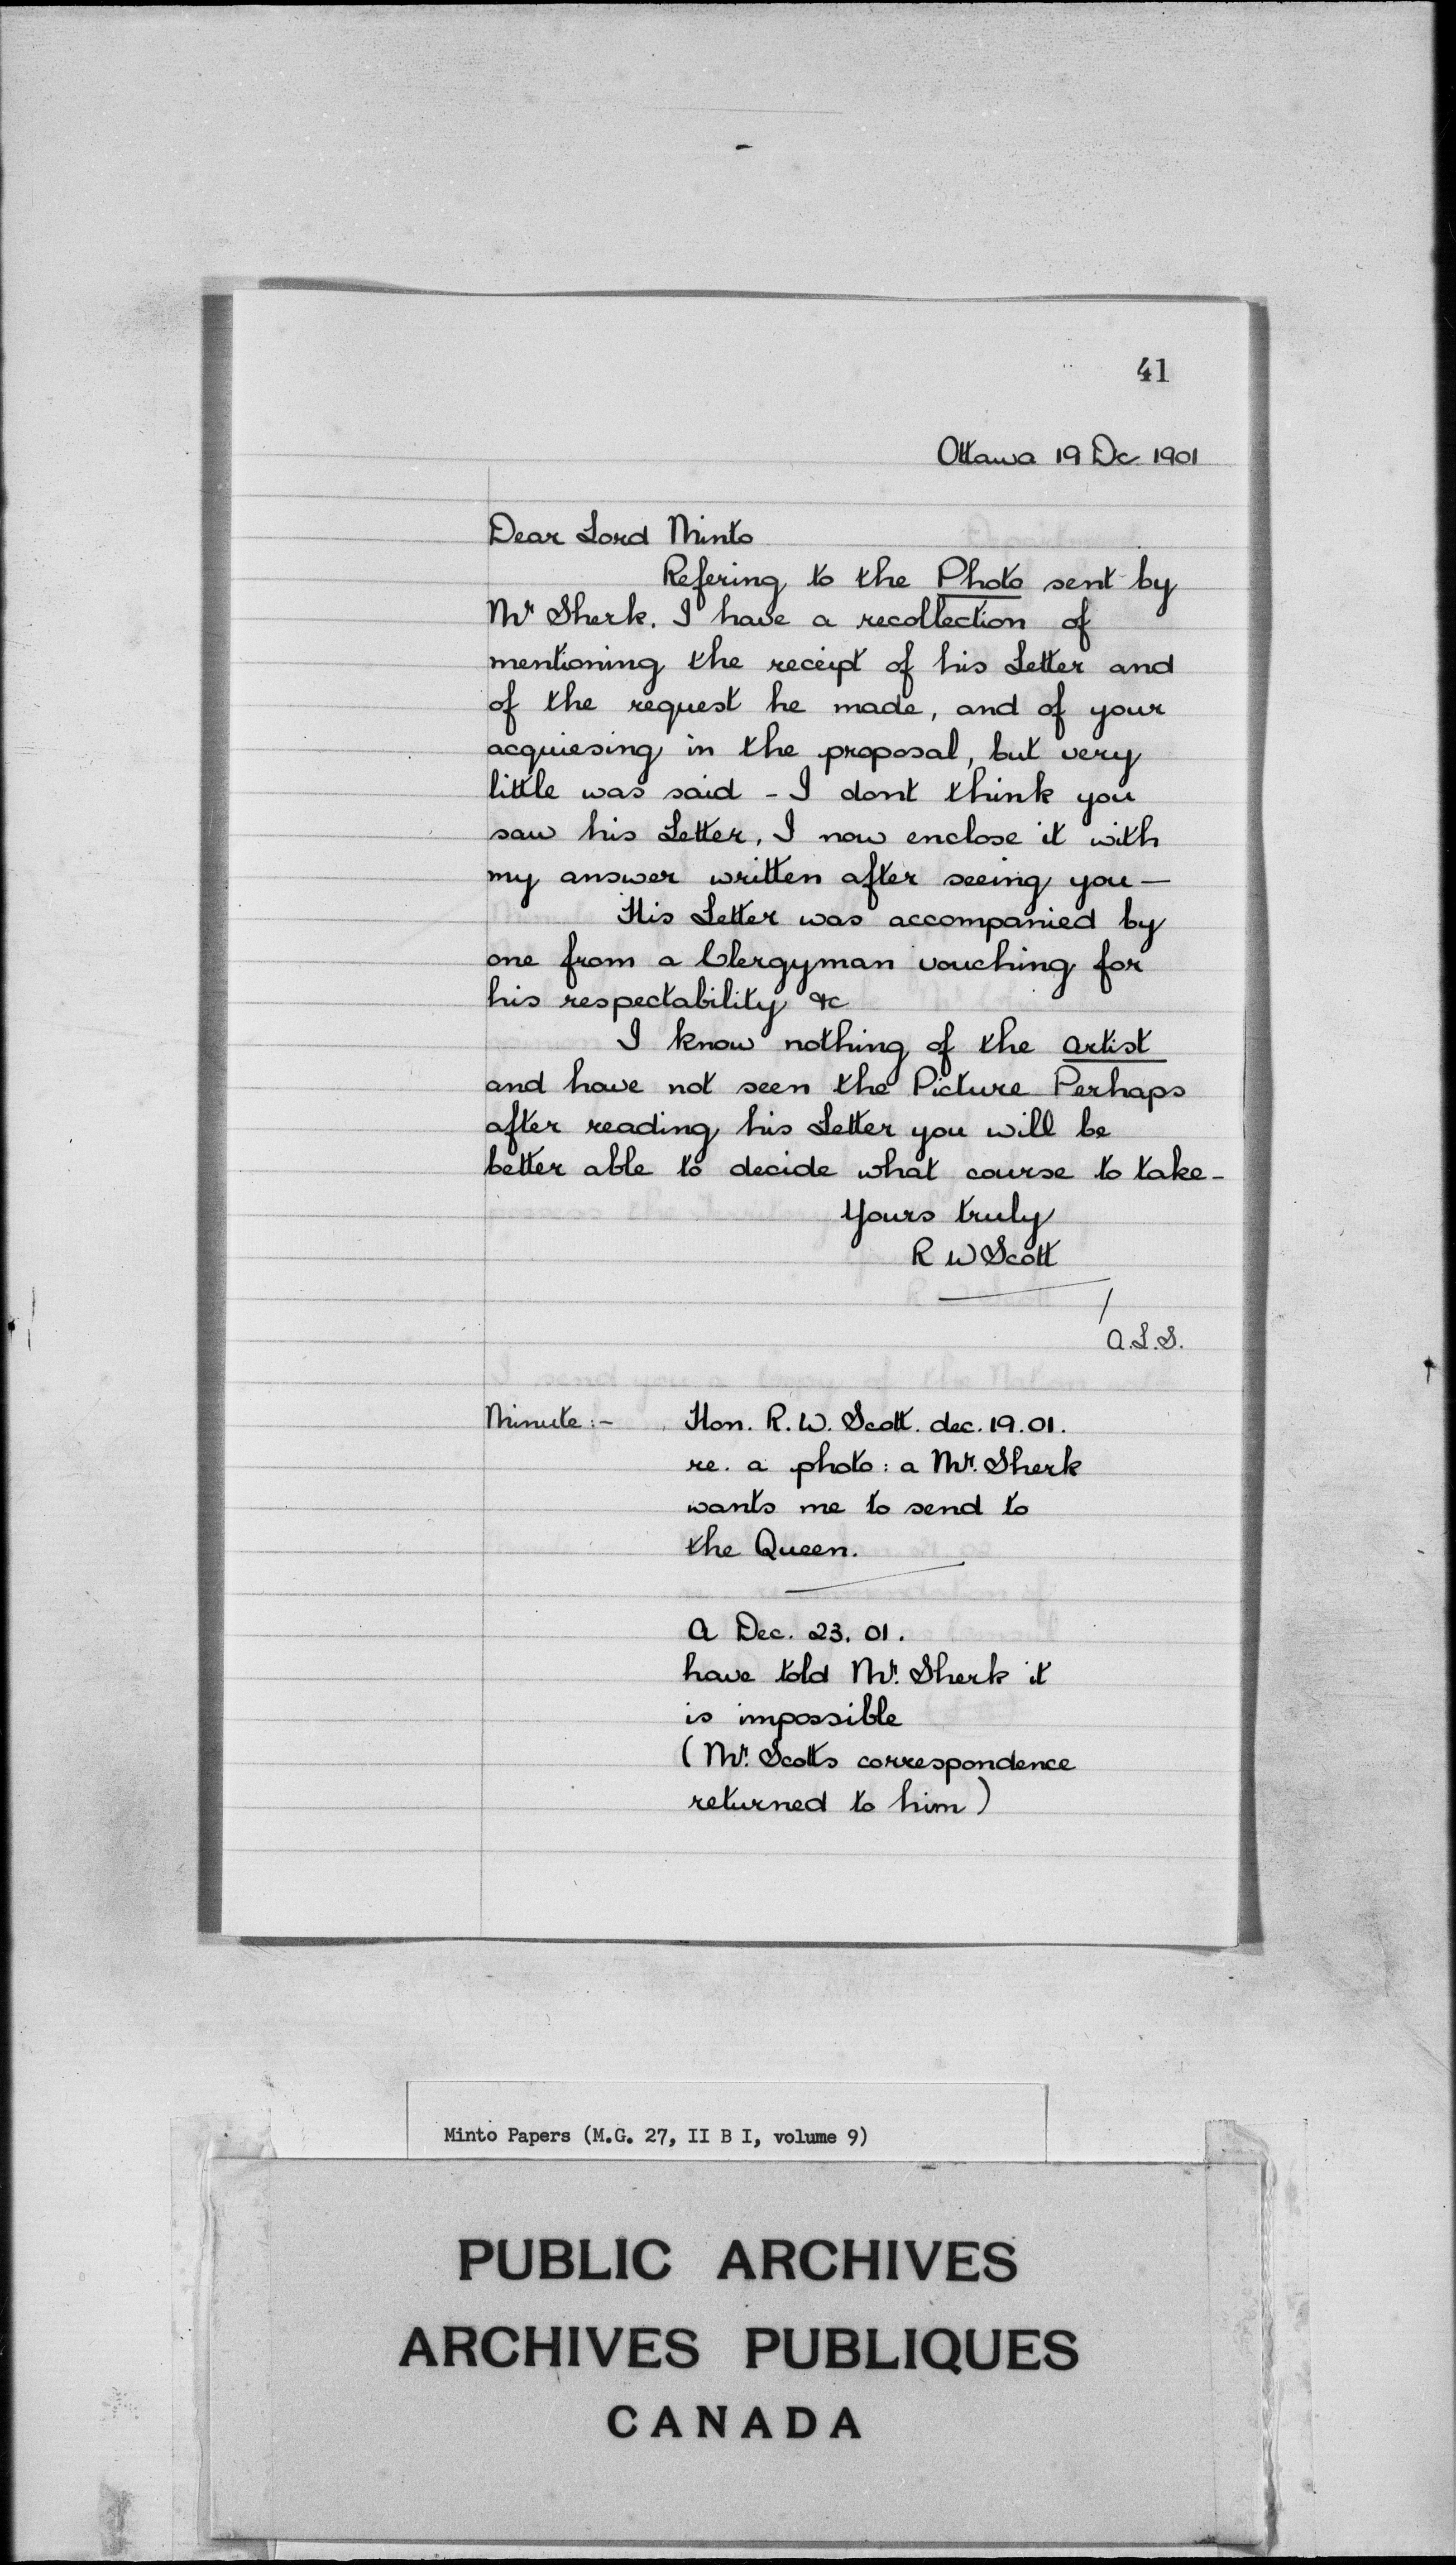 41
Ottawa 19 Dc 1901
Dear Lord Minto
Refering to the Photo sent by
Mr Sherk. I have a recollection of
mentioning the receipt of his Letter and
of the request he made, and of your
acquiesing in the proposal, but very
little was said - I dont think you
saw his Letter, I now enclose it with
my answer written after seeing you —
His Letter was accompanied by
one from a Clergyman vouching for
his respectability &c
I know nothing of the artist
and have not seen the Picture Perhaps
after reading his Letter you will be
better able to decide what course to take -
Yours truly
R W Scott
A.L.S.
Minute :- Hon. R. W. Scott. dec. 19. 01.
re. a photo : a Mr. Sherk
wants me to send to
the Queen.
A Dec. 23. 01.
have told Mr. Sherk it
is impossible
(Mr. Scotts correspondence
returned to him)
Minto Papers (M.G. 27, II B I, volume 9)
PUBLIC ARCHIVES
ARCHIVES PUBLIQUES
CANADA